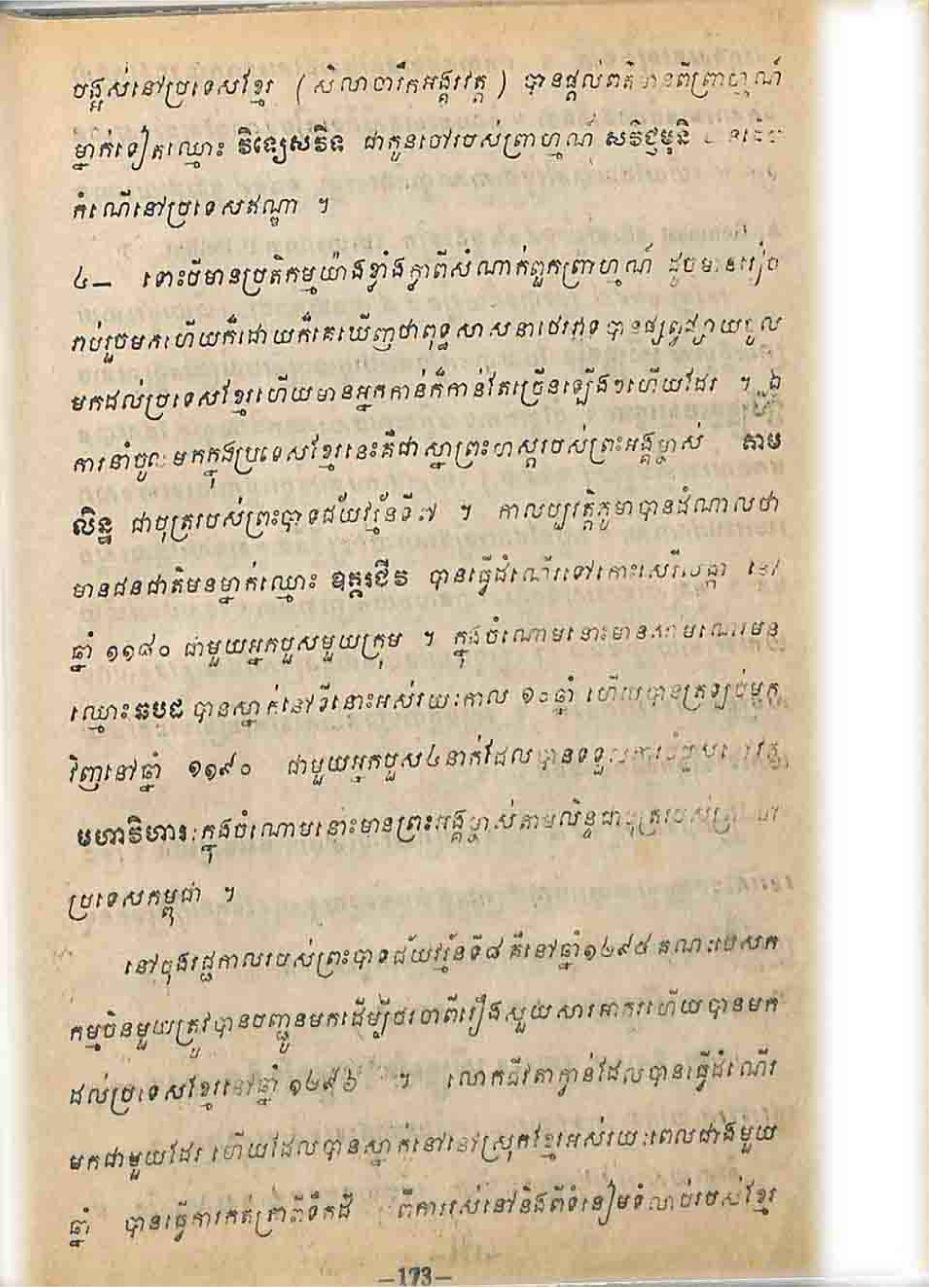 បង្អស់នៅប្រទេសខ្មែរ ( សិលាចារឹកអង្គរវត្ត ) បានផ្តល់ពត៌មានពីព្រាហ្មណ៍
ម្នាក់ទៀតឈ្មោះ វិទ្យេសវិទ ជាកូនចៅរបស់ព្រាហ្មណ៍ សវ៌ជ្ញមុនិ
កំណើនៅប្រទេសឥណ្ឌា ។
៤— ទោះបីមានប្រតិកម្មយ៉ាងខ្លាំងក្លាពីសំណាក់ពួកព្រាហ្មណ៍ ដូចមានរៀប
រាប់រួចមកហើយក៏ដោយក៏គេឃើញថាពុទ្ធសាសនាថេរវាទបានផ្សព្វផ្សាយចូល
មកដល់ប្រទេសខ្មែរហើយមានអ្នកកាន់ក៏កាន់តែច្រើនឡើងៗហើយដែរ ។ ឯ
ការនាំចូលមកក្នុងប្រទេសខ្មែរនេះគឺជាស្នាព្រះហស្តរបស់ព្រះអង្គម្ចាស់ តាម
លិន្ទ ជាបុត្ររបស់ព្រះបាទជ័យវរ្ម័នទី៧ ។ កាលប្បវត្តិភូមាបានដំណាលថា
មានជនជាតិមនម្នាក់ឈ្មោះ ឧត្តរជីវ បានធ្វើដំណើរទៅកោះសេរីលង្កា នៅ
ឆ្នាំ ១១៨០ ជាមួយអ្នកបួសមួយក្រុម ។ ក្នុងចំណោមនោះមានសាមណេរមន
ឈ្មោះ ឆបដ បានស្នាក់នៅទីនោះអស់រយៈកាល ១០ឆ្នាំ ហើយបានត្រឡប់មក
វិញនៅឆ្នាំ ១១៩០ ជាមួយអ្នកបួស៤នាក់ដែលបានទទួលការ
មហាវិហារៈក្នុងចំណោមនោះមានព្រះអង្គម្ចាស់តាមលិន្ទជាបុត្ររបស់
ប្រទេសកម្ពុជា ។
នៅចុងរជ្ជកាលរបស់ព្រះបាទជ័យវរ្ម័នទី៨ គឺនៅឆ្នាំ១២៩៥ គណៈបេសក
កម្មចិនមួយត្រូវបានបញ្ជូនមកដើម្បីចរចាពីរឿងសួយសារអាករហើយបានមក
ដល់ប្រទេសខ្មែរនៅឆ្នាំ ១២៩៦ ។ លោកជីវតាក្វាន់ដែលបានធ្វើដំណើរ
មកជាមួយដែរ ហើយដែលបានស្នាក់នៅនៅស្រុកខ្មែរអស់រយៈពេលជាងមួយ
ឆ្នាំ បានធ្វើការកត់ត្រាពីទឹកដី ពីការរស់នៅនិងពីទំនៀមទំលាប់របស់ខ្មែរ
—173—